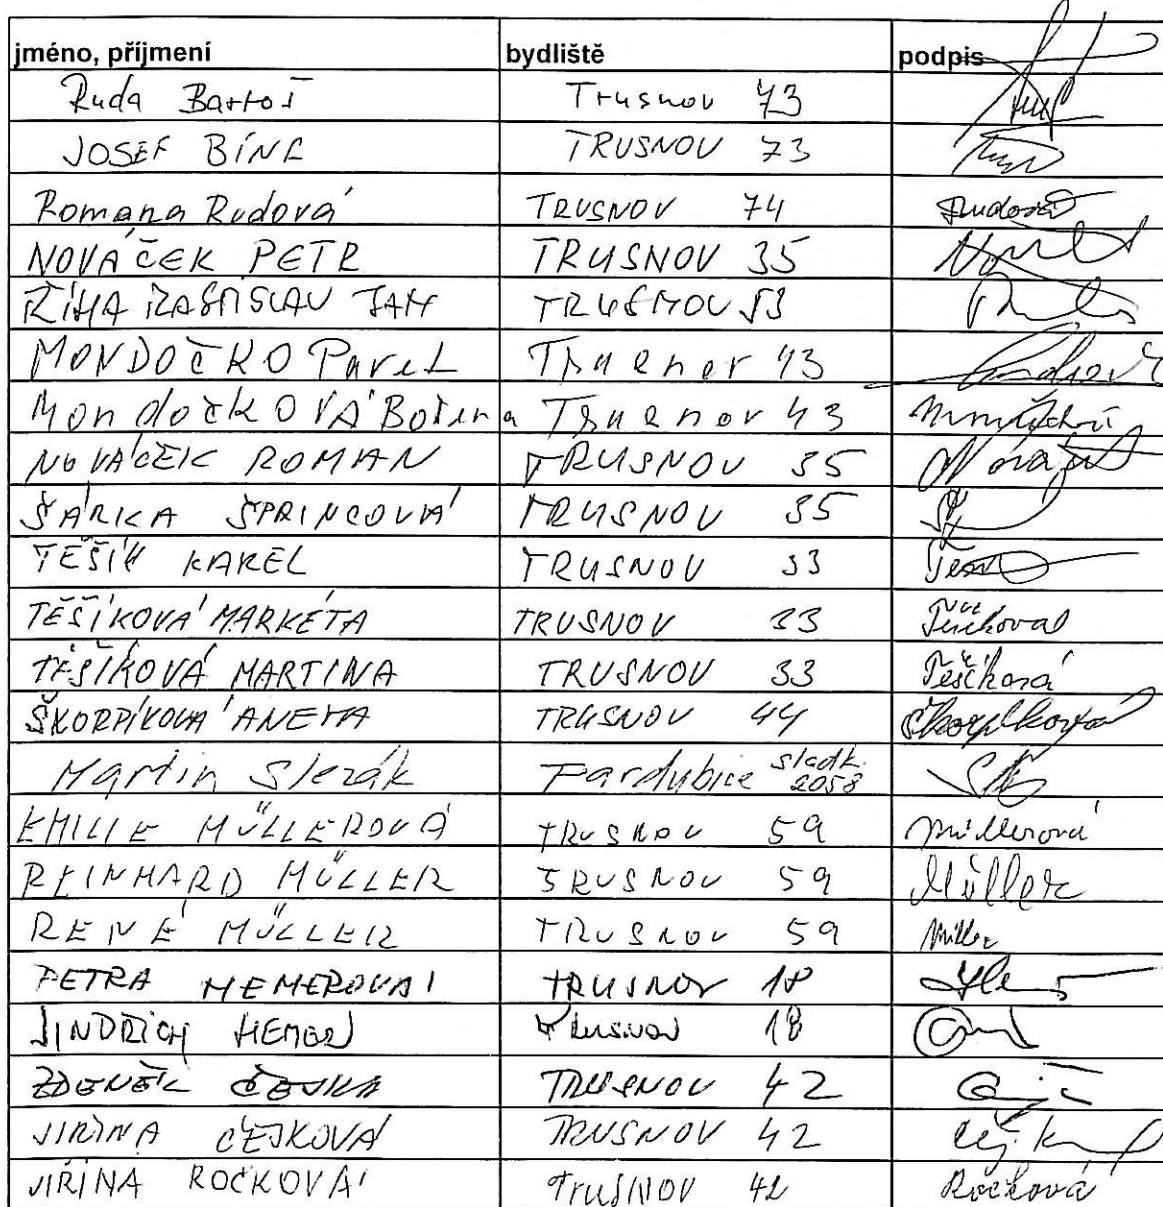 jméno, příjmení bydliště podpis
Ruda Bartoš Trusnov 73
JOSEF BÍNA TRUSNOV 73
Romana Rudová TRUSNOV 74 Rudová
NOVÁČEK PETR TRUSNOV 35
ŘÍHA RASTISLAV JAN TRUSNOV 53
MONDOČKO Pavel Trusnov 43
MondočkOVÁ Božena Trusnov 43
NOVÁČEK ROMAN TRUSNOV 35
ŠÁRKA ŠPRINCOVÁ TRUSNOV 35
TĚŠÍK KAREL TRUSNOV 33
TĚŠÍKOVÁ MARKÉTA TRUSNOV 33 Těšíková
TĚŠÍKOVÁ MARTINA TRUSNOV 33 Těšíková
ŠKORPÍKOVÁ ANETA TRUSNOV 44 Škorpíková
Martin Slezák Pardubice sladk. 2058
EMILIE MÜLLEROVÁ TRUSNOV 59 Müllerová
REINHARD MÜLLER TRUSNOV 59 Müller
RENÉ MÜLLER TRUSNOV 59 Müller
PETRA HEMEROVÁ TRUSNOV 18
JINDŘICH HEMER Trusnov 18
ZDENĚK ČEJKA TRUSNOV 42
JIŘINA ČEJKOVÁ TRUSNOV 42
JIŘINA ROČKOVÁ TRUSNOV 42 Ročková